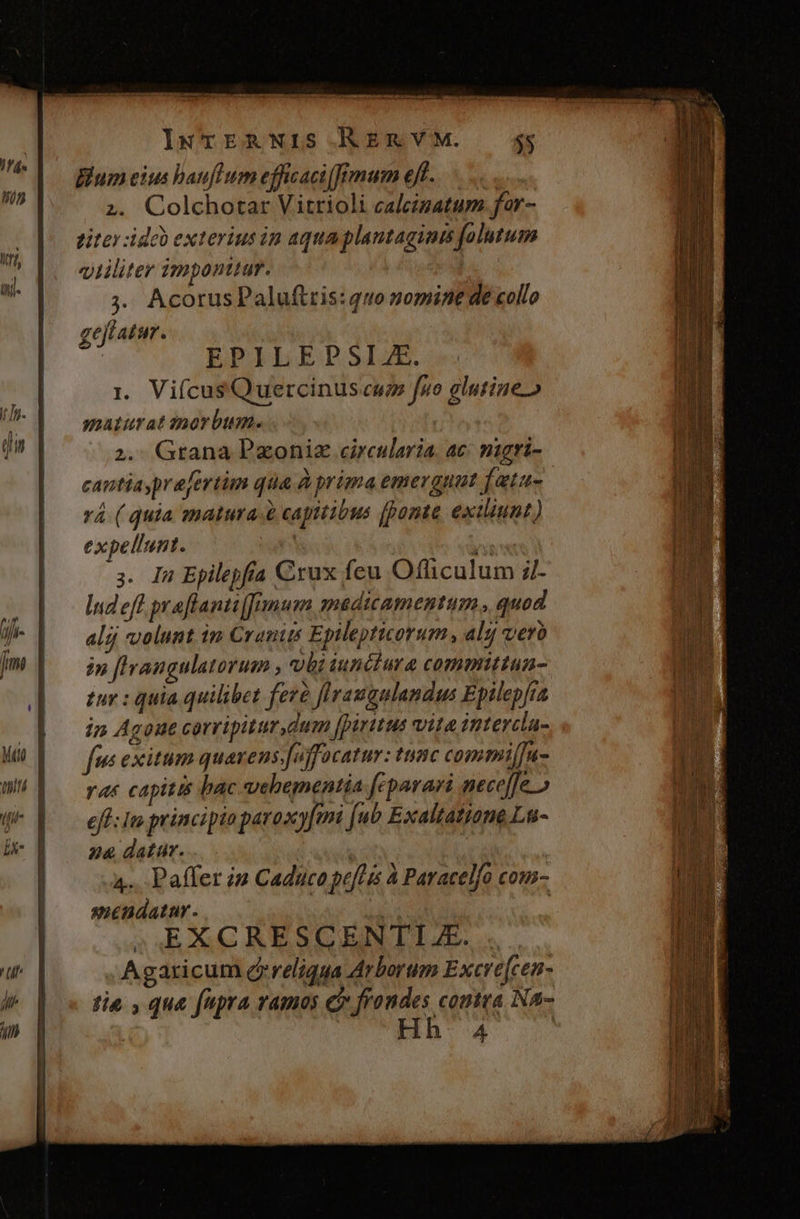 INTERNIS RERVM. 55
ctum eius haustum efficacissimum est.
2. Colchotar Vitrioli calcinatum fortiter:ideò exterius in aqua plantaginis solutum
vtiliter imponitur.
3. Acorus Palustris: quo nomine de collo
gestatur.
EPILEPSIÆ.
1. Viſcus Quercinus cum ſuo glutine
maturat morbum.
2. Grana Pæoniæ circularia ac nigri-
cantia, præſertim quæ à prima emergunt ſætu-
râ (quia matura è capitibus ſponte exiliunt)
expellunt.
3. In Epilepſia Crux ſeu Officulum il-
lud eſt præſtantiſſimum medicamentum, quod
alij volunt in Craniis Epilepticorum, alij verò
in ſtrangulatorum, vbi iunctura committun-
tur: quia quilibet ferè ſtrangulandus Epilepſia
in Agone corripitur, dum ſpiritus vitæ interclu-
ſus exitum quærens, ſuffocatur: tunc commiſſu-
ras capitis hac vehementia ſeparari neceſſe
eſt: In principio paroxyſmi ſub Exaltatione Lu-
næ datur.
4. Paſſer in Caduco peſtis à Paracelſo com-
mendatur.
EXCRESCENTIÆ.
Agaricum & reliqua Arborum Excreſcen-
tiæ, quæ ſupra ramos & frondes contra Na-
Hh 4